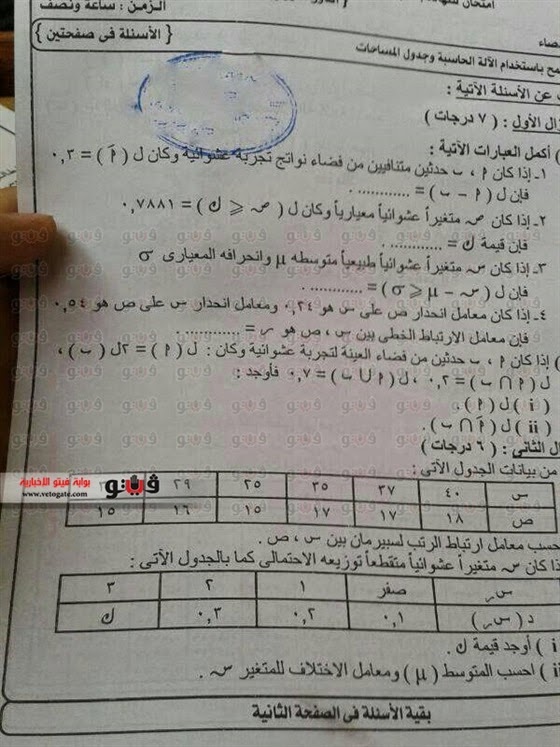 الزمن : ساعة ونصف
{ الأسئلة فى صفحتين }
باستخدام الآلة الحاسبة وجدول المساحات
عن الأسئلة الآتية :
الأول : ( ٧ درجات )
) أكمل العبارات الآتية :
١ـ إذا كان ﺍ ، ب حدثين متنافيين من فضاء نواتج تجربة عشوائية وكان ل ( أَ ) = ٠,٣
فإن ل ( ﺍ − ب ) = ............ .
٢ـ إذا كان ص متغيراً عشوائياً معيارياً وكان ل ( ص ⩽ ك ) = ٠,٧٨٨١
فإن قيمة ك = ............ .
٣ـ إذا كان س متغيراً عشوائياً طبيعياً متوسطه μ وانحرافه المعيارى σ
فإن ل ( س − μ ⩽ σ ) = ............ .
٤ـ إذا كان معامل انحدار ص على س هو ٠,٢٤ ومعامل انحدار س على ص هو ٠,٥٤
فإن معامل الارتباط الخطى بين س ، ص هو ر = ............ .
) إذا كان ﺍ ، ب حدثين من فضاء العينة لتجربة عشوائية وكان : ل ( ﺍ ) = ٢ ل ( ب ) ،
ل ( ﺍ ∩ ب ) = ٠,٢ ، ل ( ﺍ ∪ ب ) = ٠,٧ فأوجد :
( i ) ل ( ﺍ ) .
( ii ) ل ( أَ ∩ ب ) .
الثانى : ( ٦ درجات )
من بيانات الجدول الآتى :
س ٤٠ ٣٧ ٣٥ ٢٥ ٢٩
ص ١٨ ١٧ ١٧ ١٥ ١٦ ١٥
فيتو
بوابة فيتو الأخبارية
www.vetogate.com
حسب معامل ارتباط الرتب لسبيرمان بين س ، ص .
ذا كان س متغيراً عشوائياً متقطعاً توزيعه الاحتمالى كما بالجدول الآتى :
س ر صفر ١ ٢ ٣
د ( س ر ) ٠,١ ٠,٢ ٠,٣ ك
i ) أوجد قيمة ك .
ii ) احسب المتوسط ( μ ) ومعامل الاختلاف للمتغير س .
بقية الأسئلة فى الصفحة الثانية